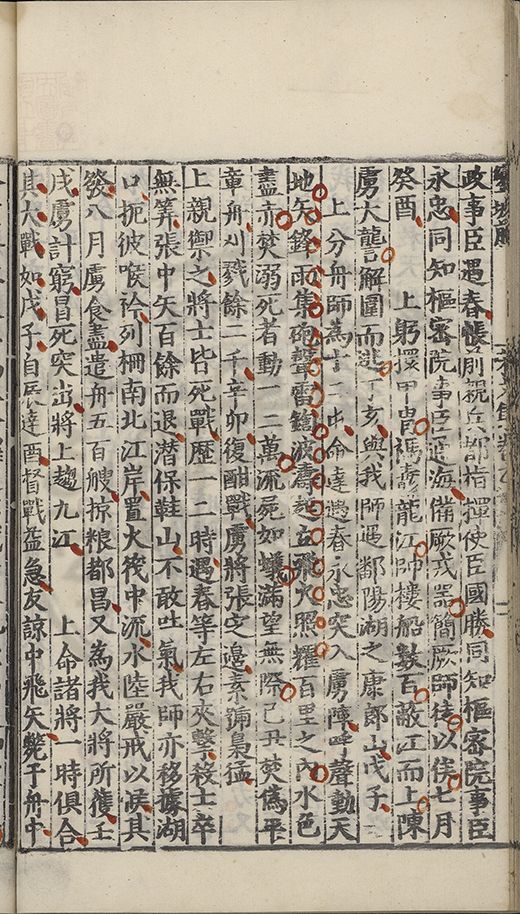 政事臣遇春帳前親兵都指揮使臣國勝同知樞密院事臣
永忠同知樞密院事臣通海備厥戎器簡厥師徒以俟七月
癸酉　上躬擐甲冑禡纛龍江帥樓船數百蔽江而上陳
虜大讋解圍而逃丁亥與我師遇鄱陽湖之康郎山戊子
上分舟師為十二屯命達遇春永忠突入虜陣呼聲動天
地矢鋒雨集砲聲雷鍧波濤起立飛火照耀百里之內水色
盡赤焚溺死者動一二萬流屍如蟻滿望無際己丑焚偽平
章舟刈戮餘二千辛卯復酣戰虜將張定邊素號梟猛
上親禦之將士皆死戰歷一二時遇春等左右夾擊殺士卒
無筭張中矢百餘而退潛保鞋山不敢吐氣我師亦移據湖
口扼彼喉衿列柵南北江岸置大筏中流水陸嚴戒以俟其
發八月虜食盡遣舟五百艘掠粮都昌又為我大將所獲壬
戌虜計窮冒死突出將上趨九江　上命諸將一時俱合
其大戰如戊子自辰達酉督戰益急友諒中飛矢斃于舟中